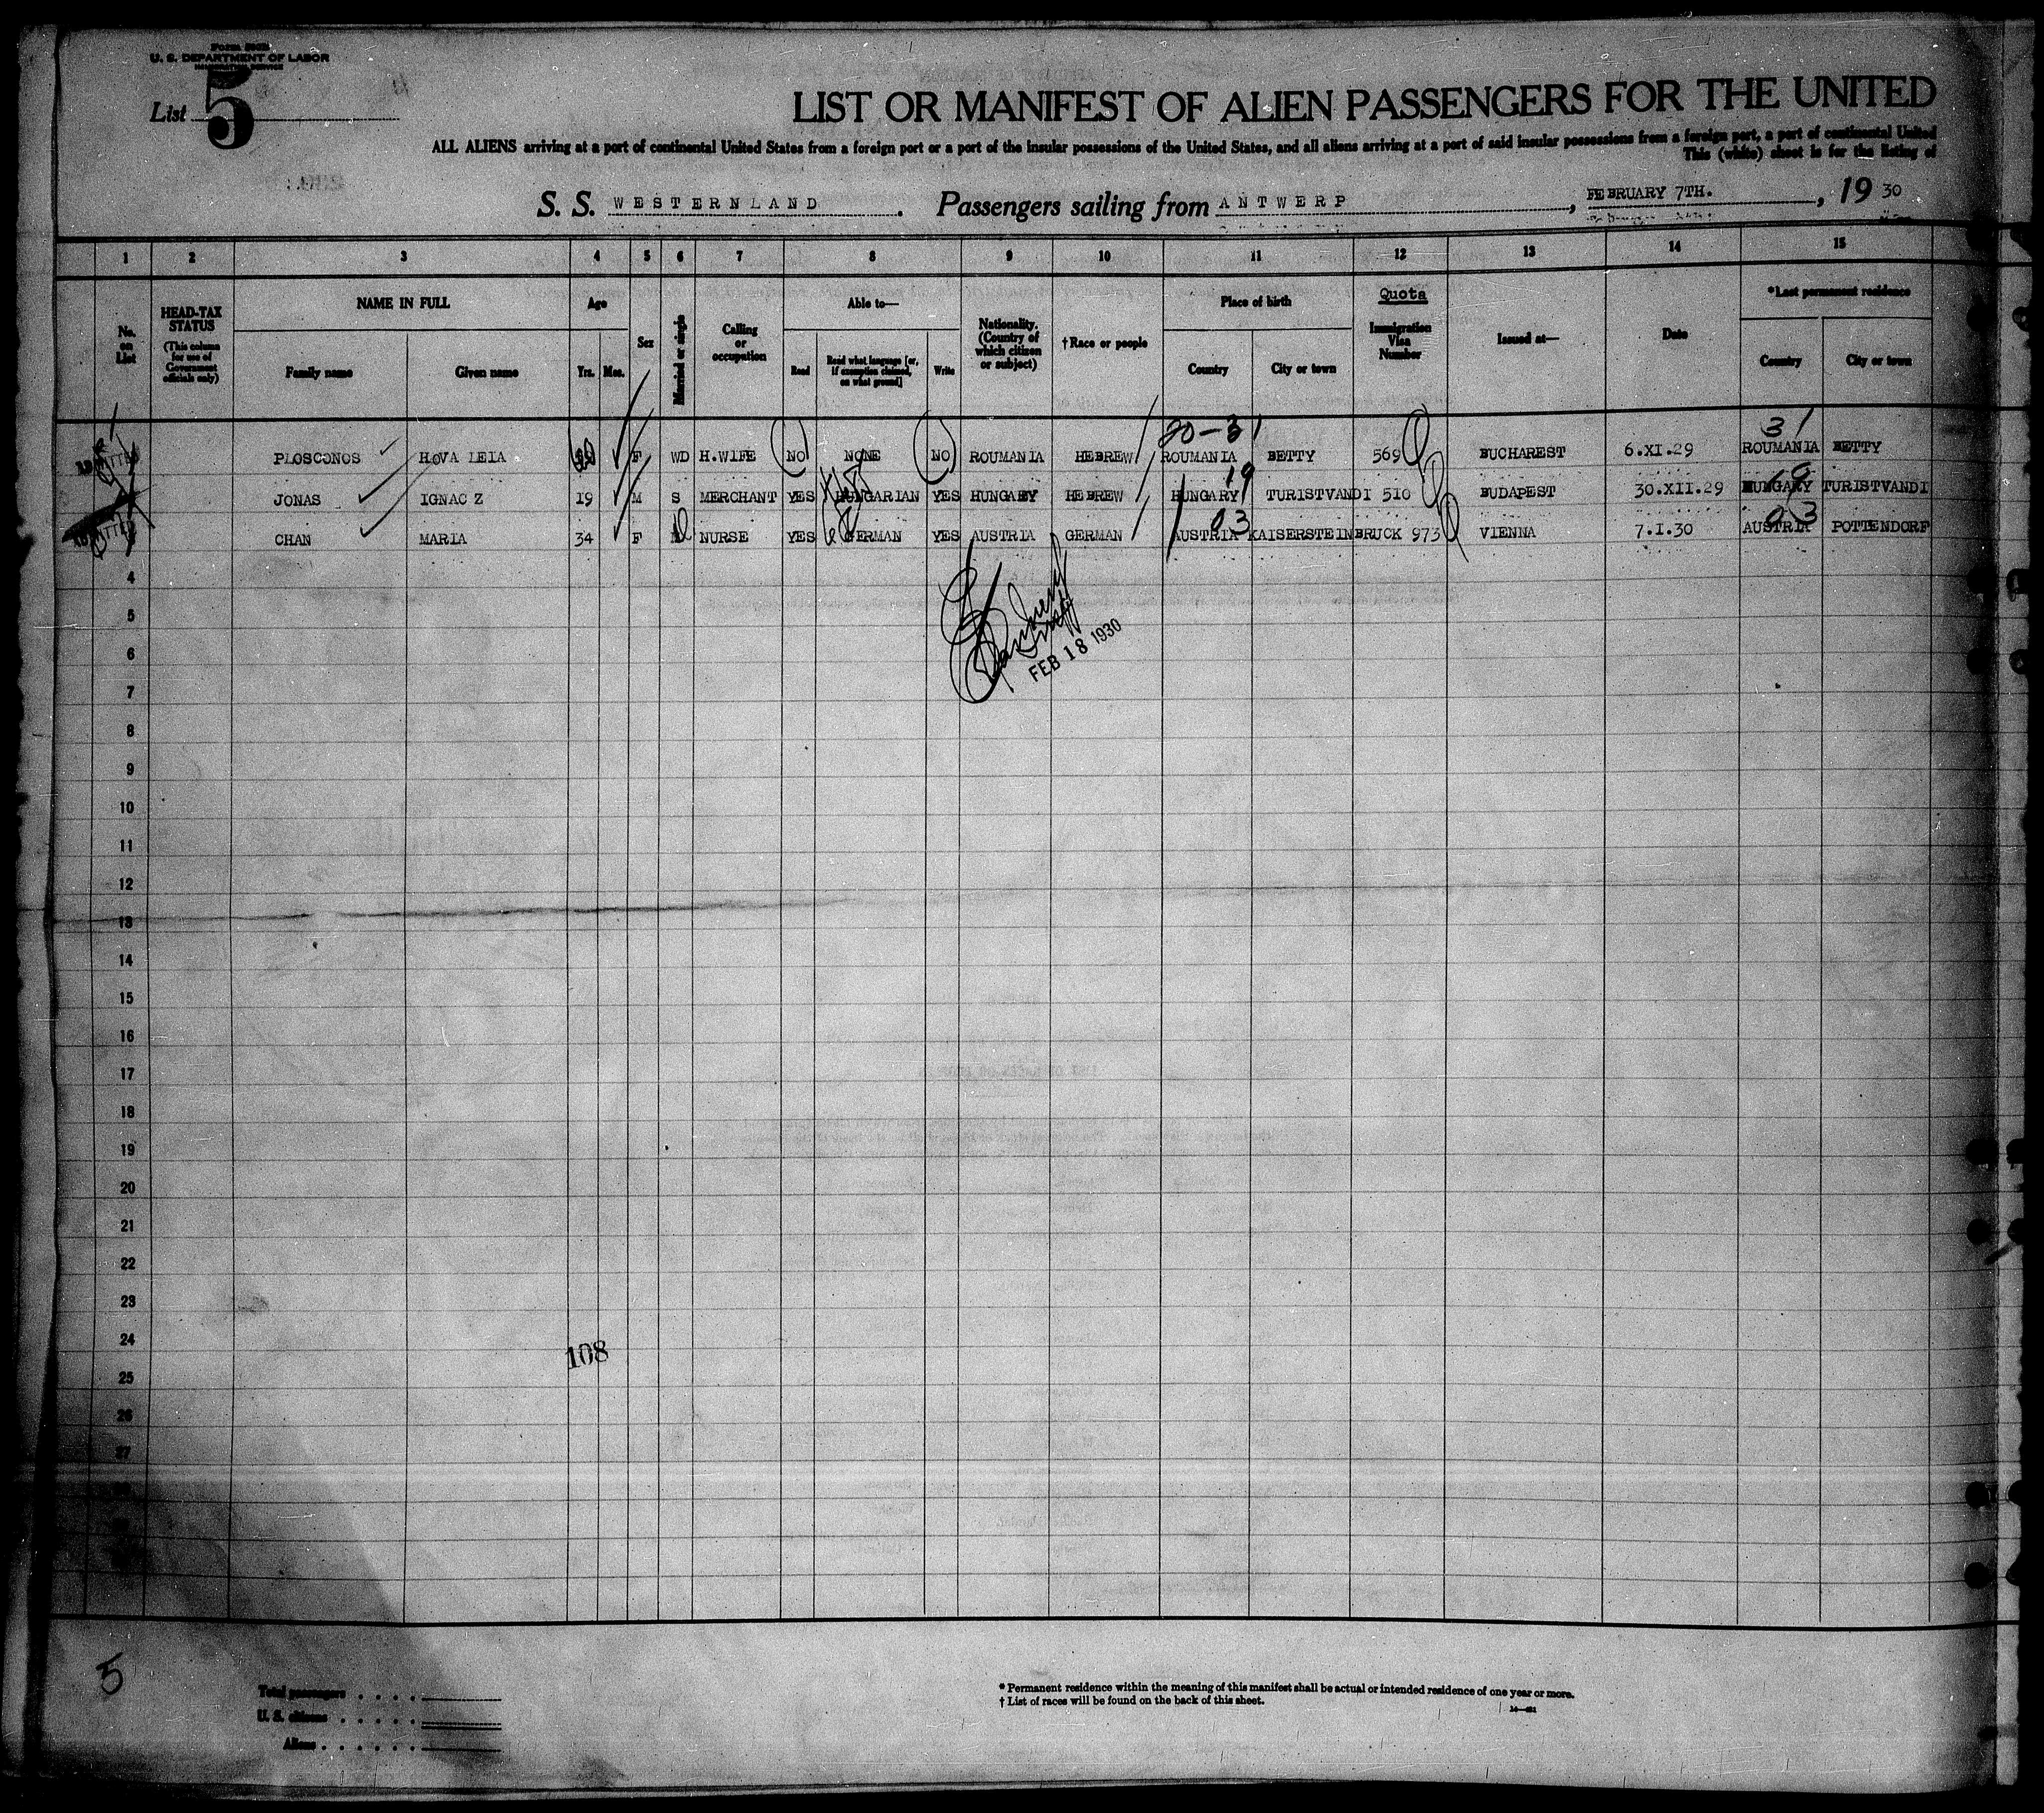 Form 500B
U. S. DEPARTMENT OF LABOR
IMMIGRATION SERVICE
List 5
LIST OR MANIFEST OF ALIEN PASSENGERS FOR THE UNITED
ALL ALIENS arriving at a port of continental United States from a foreign port or a port of the insular possessions of the United States, and all aliens arriving at a port of said insular possessions from a foreign port, a port of continental United
This (white) sheet is for the listing of
S. S. WESTERNLAND. Passengers sailing from ANTWERP, FEBRUARY 7TH., 1930
1 2 3 4 5 6 7 8 9 10 11 12 13 14 15
No. on List
HEAD-TAX STATUS (This column for use of Government officials only)
NAME IN FULL
Family name Given name
Age
Yrs. Mos.
Sex
Married or single
Calling or occupation
Able to—
Read Read what language [or, if exemption claimed, on what ground] Write
Nationality. (Country of which citizen or subject)
†Race or people
Place of birth
Country City or town
Quota
Immigration Visa Number
Issued at—
Date
*Last permanent residence
Country City or town
20-31 31
ADMITTED PLOSCONOS F WD H.WIFE NO NONE NO ROUMANIA HEBREW ROUMANIA BETTY 569 BUCHAREST 6.XI.29 ROUMANIA BETTY
19 19
JONAS IGNACZ 19 M S MERCHANT YES HUNGARIAN YES HUNGARY HEBREW HUNGARY TURISTVANDI 510 BUDAPEST 30.XII.29 HUNGARY TURISTVANDI
03 03
ADMITTED CHAN MARIA 34 F NURSE YES GERMAN YES AUSTRIA GERMAN AUSTRIA KAISERSTEINBRUCK 973 VIENNA 7.I.30 AUSTRIA POTTENDORF
4
5
6
FEB 18 1930
7
8
9
10
11
12
13
14
15
16
17
18
19
20
21
22
23
24
108
25
26
27
5
Total passengers
U. S. citizens
Aliens
* Permanent residence within the meaning of this manifest shall be actual or intended residence of one year or more.
† List of races will be found on the back of this sheet.